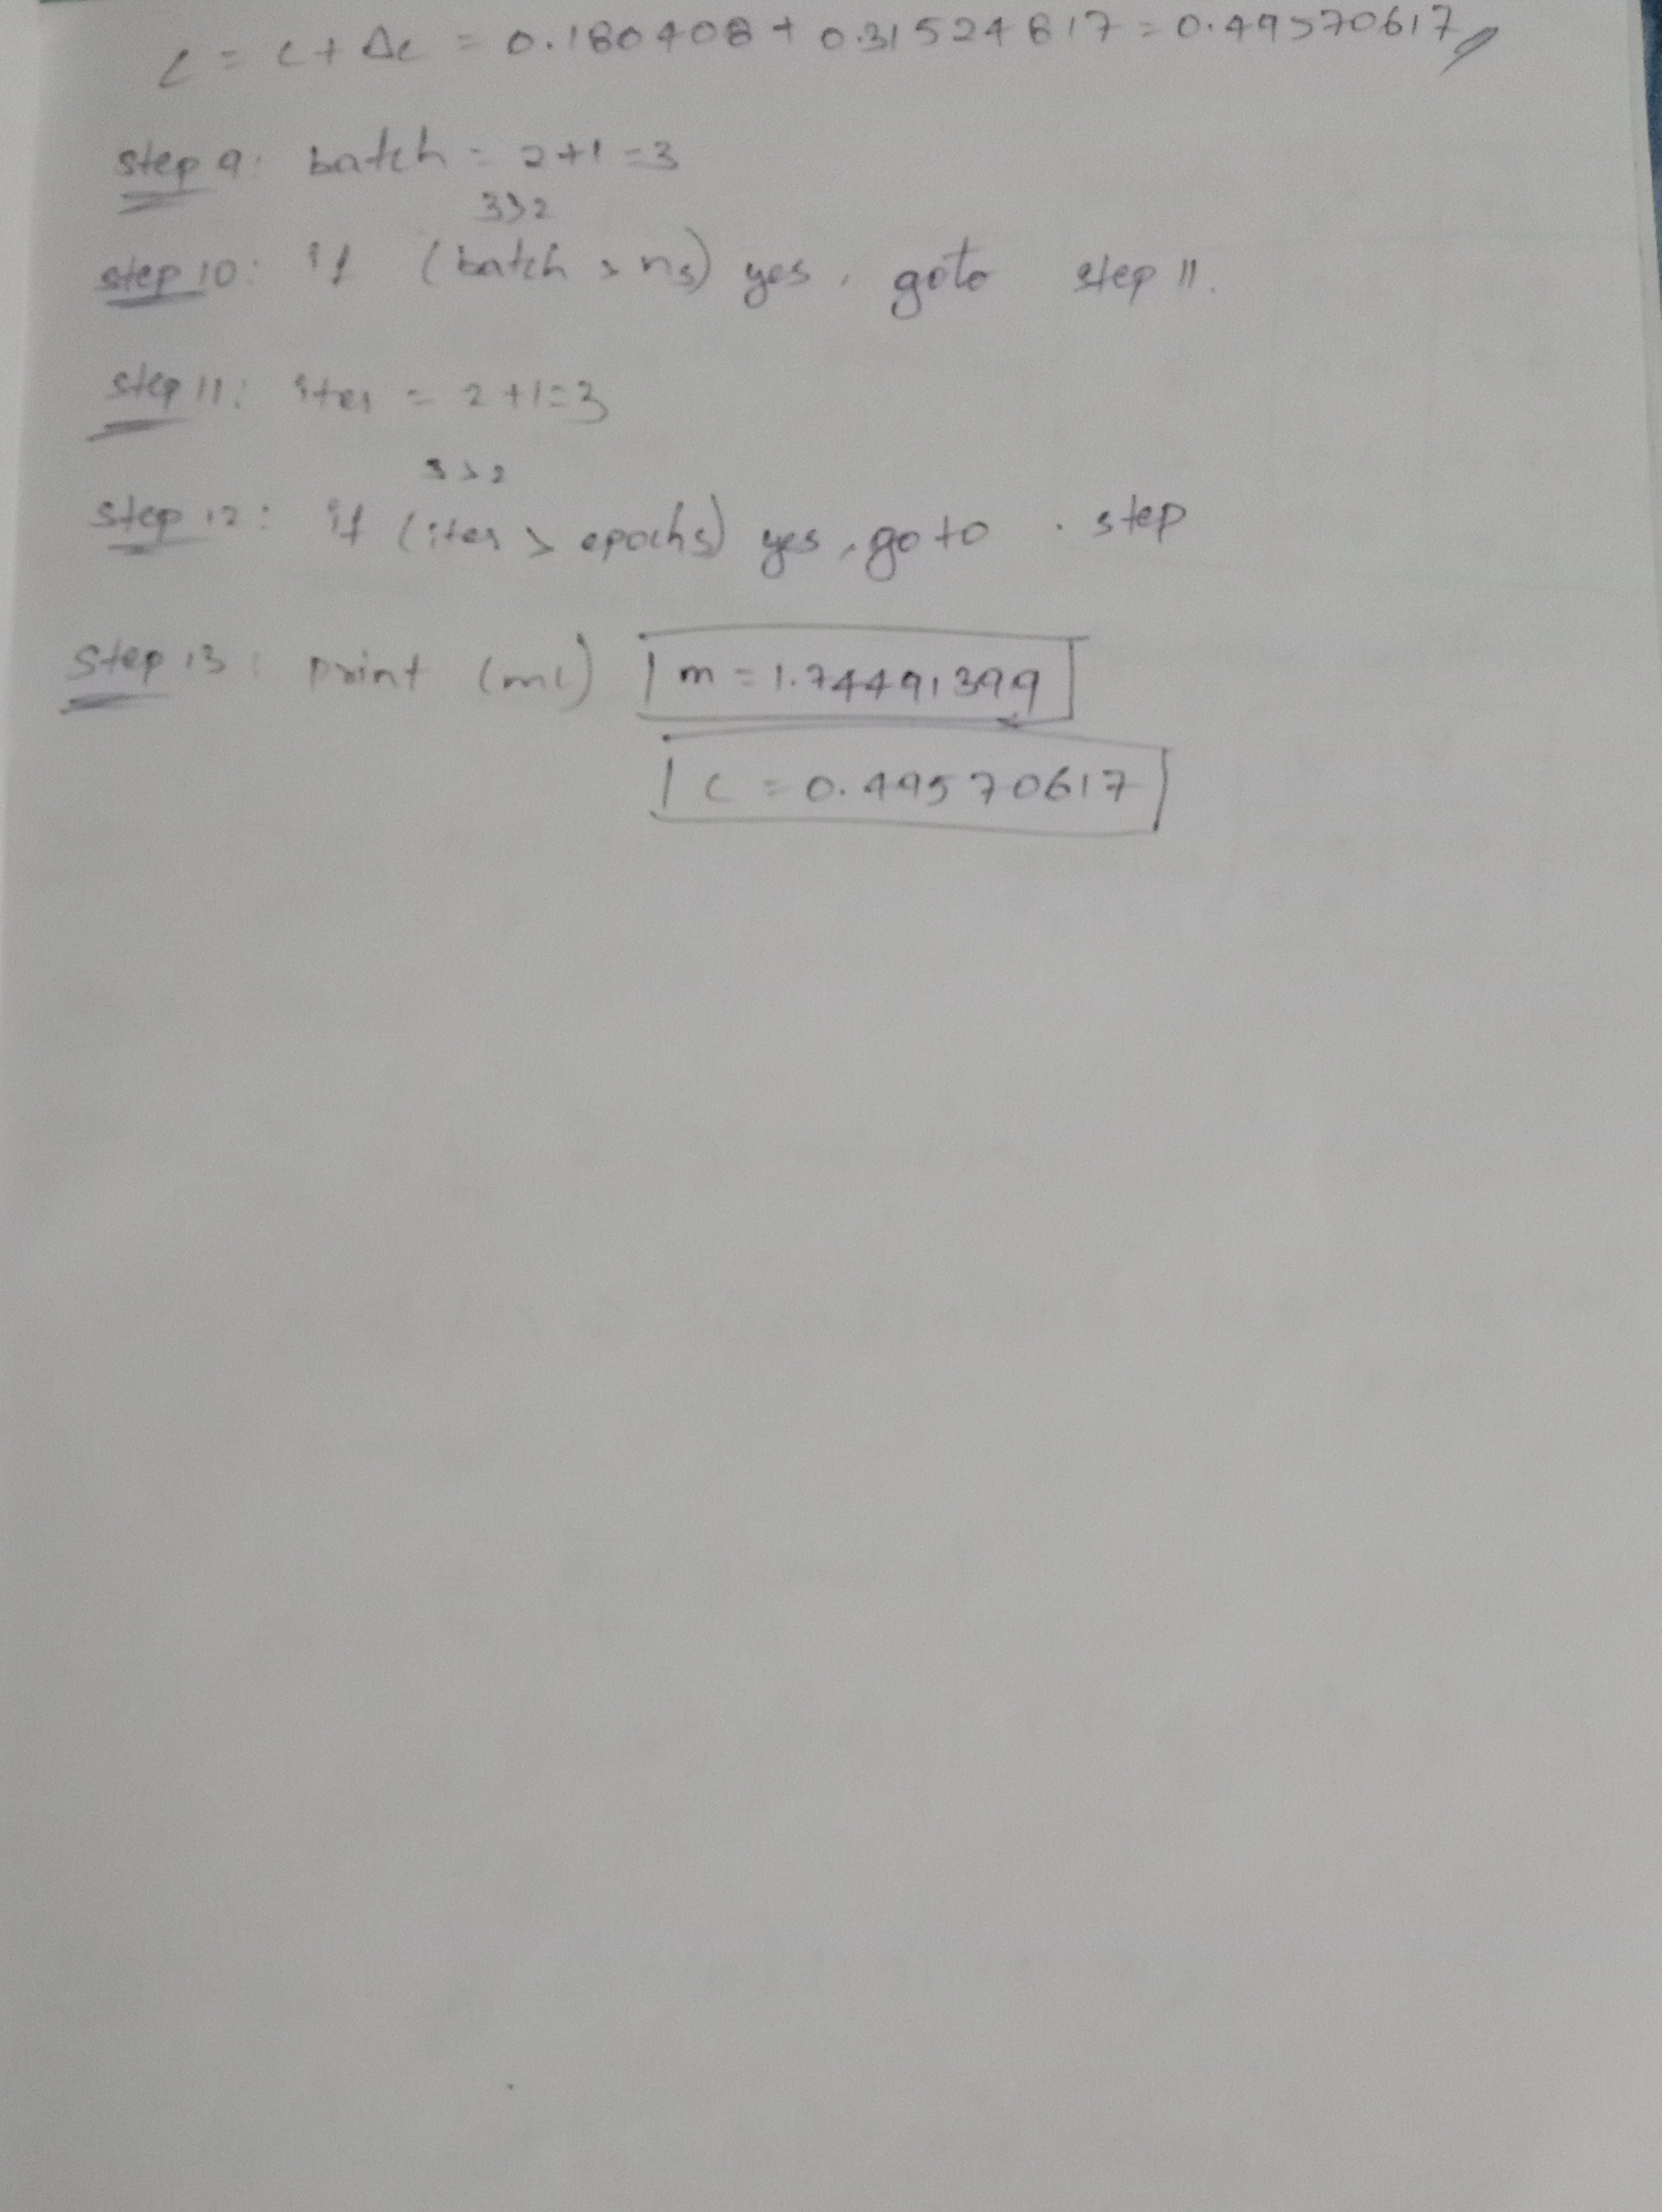 c = c + Δc = 0.180408 + 0.31524817 = 0.49570617
step 9: batch = 2+1=3
3>2
step 10: if (batch > ns) yes, goto step 11.
step 11: iter = 2+1=3
3>2
step 12: if (iter > epochs) yes, goto . step
step 13: print (mc) m = 1.74491399
c = 0.49570617